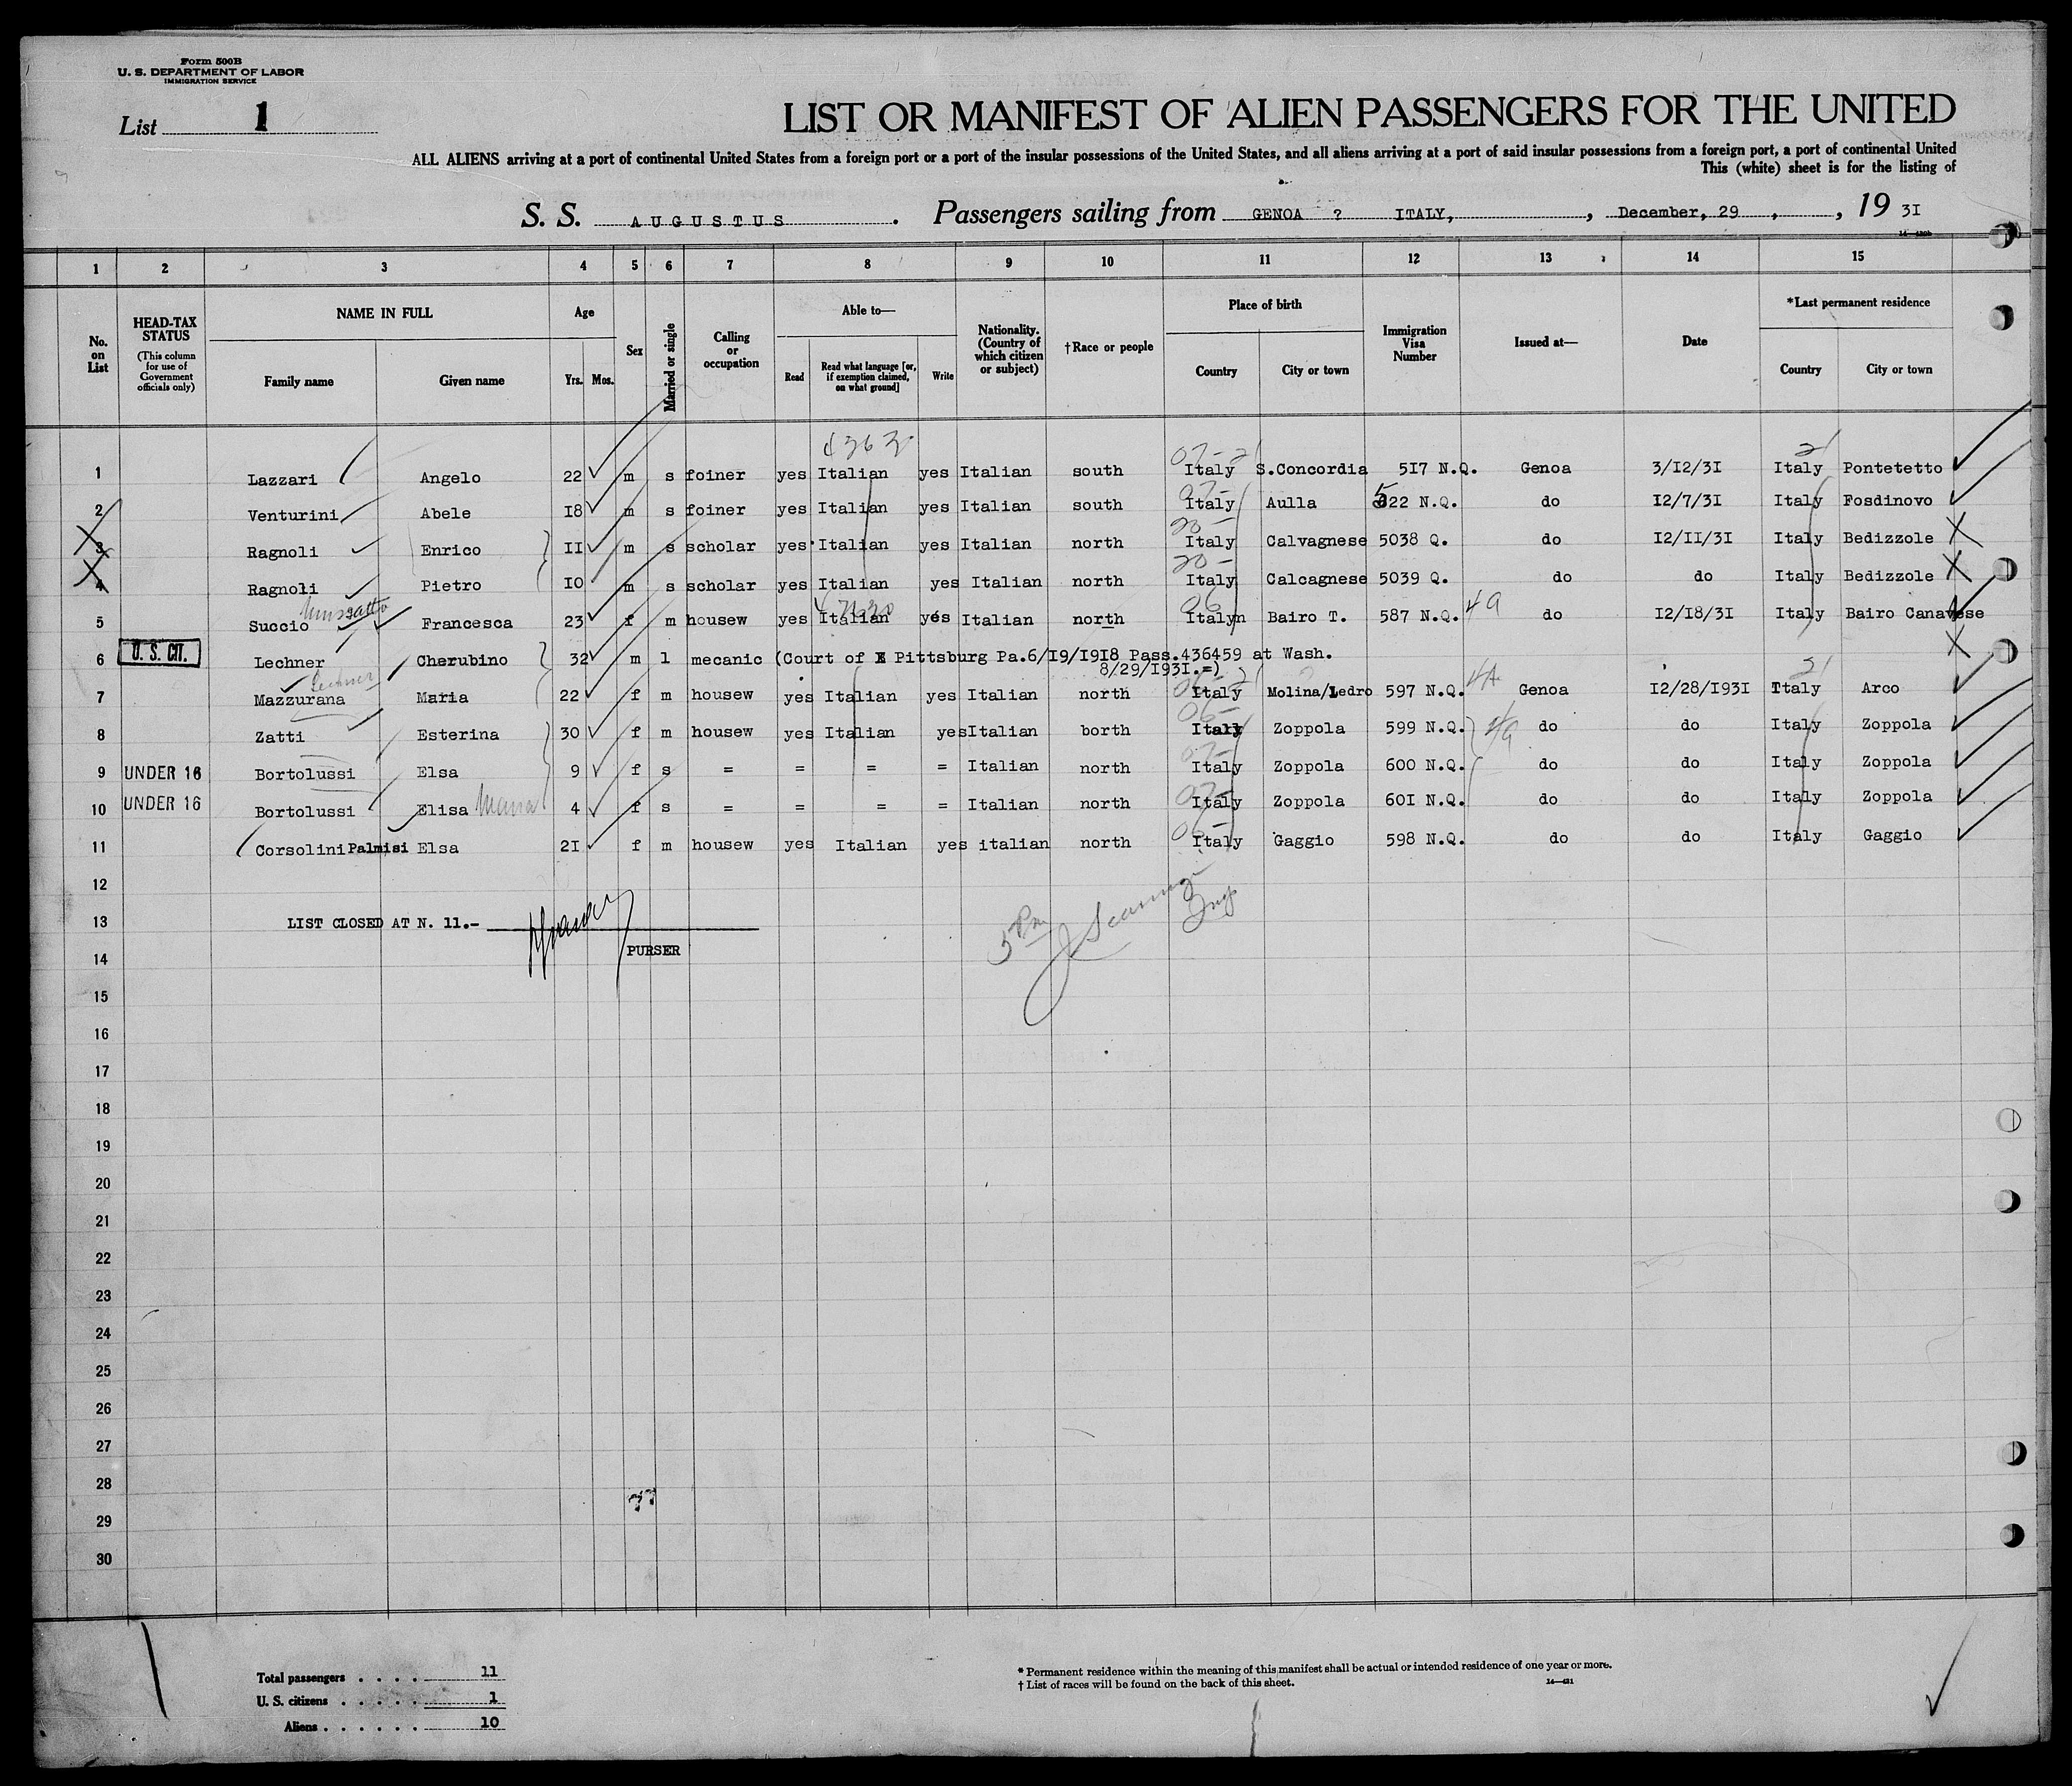 Form 500B
U. S. DEPARTMENT OF LABOR
IMMIGRATION SERVICE
List 1
LIST OR MANIFEST OF ALIEN PASSENGERS FOR THE UNITED
ALL ALIENS arriving at a port of continental United States from a foreign port or a port of the insular possessions of the United States, and all aliens arriving at a port of said insular possessions from a foreign port, a port of continental United
This (white) sheet is for the listing of
S. S. AUGUSTUS . Passengers sailing from GENOA ? ITALY, , December, 29 , , 19 3I
1 2 3 4 5 6 7 8 9 10 11 12 13 14 15
No. on List HEAD-TAX STATUS (This column for use of Government officials only) NAME IN FULL Family name Given name Age Yrs. Mos. Sex Married or single Calling or occupation Able to— Read Read what language [or, if exemption claimed, on what ground] Write Nationality. (Country of which citizen or subject) †Race or people Place of birth Country City or town Immigration Visa Number Issued at— Date *Last permanent residence Country City or town
1 Lazzari Angelo 22 m s foiner yes Italian yes Italian south Italy S.Concordia 5I7 N.Q. Genoa 3/I2/3I Italy Pontetetto
2 Venturini Abele I8 m s foiner yes Italian yes Italian south Italy Aulla 522 N.Q. do I2/7/3I Italy Fosdinovo
3 Ragnoli Enrico II m s scholar yes Italian yes Italian north Italy Calvagnese 5038 Q. do I2/II/3I Italy Bedizzole
4 Ragnoli Pietro IO m s scholar yes Italian yes Italian north Italy Calcagnese 5039 Q. do do Italy Bedizzole
5 Succio Francesca 23 f m housew yes Italian yes Italian north Italyn Bairo T. 587 N.Q. 4a do I2/I8/3I Italy Bairo Canavese
6 U. S. CIT. Lechner Cherubino 32 m l mecanic (Court of Pittsburg Pa.6/I9/I9I8 Pass.436459 at Wash.
8/29/I93I.=)
7 Mazzurana Lechner Maria 22 f m housew yes Italian yes Italian north Italy Molina/Ledro 597 N.Q. 4A Genoa I2/28/I93I Ttaly Arco
8 Zatti Esterina 30 f m housew yes Italian yes Italian borth Italy Zoppola 599 N.Q. 4a do do Italy Zoppola
9 UNDER 16 Bortolussi Elsa 9 f s = = = = Italian north Italy Zoppola 600 N.Q. do do Italy Zoppola
10 UNDER 16 Bortolussi Elisa 4 f s = = = = Italian north Italy Zoppola 60I N.Q. do do Italy Zoppola
11 Corsolini Palmisi Elsa 2I f m housew yes Italian yes italian north Italy Gaggio 598 N.Q. do do Italy Gaggio
12
13 LIST CLOSED AT N. 11.-
14 PURSER
15
16
17
18
19
20
21
22
23
24
25
26
27
28
29
30
Total passengers . . . . 11
U. S. citizens . . . . . 1
Aliens . . . . . . 10
* Permanent residence within the meaning of this manifest shall be actual or intended residence of one year or more.
† List of races will be found on the back of this sheet.
14—421